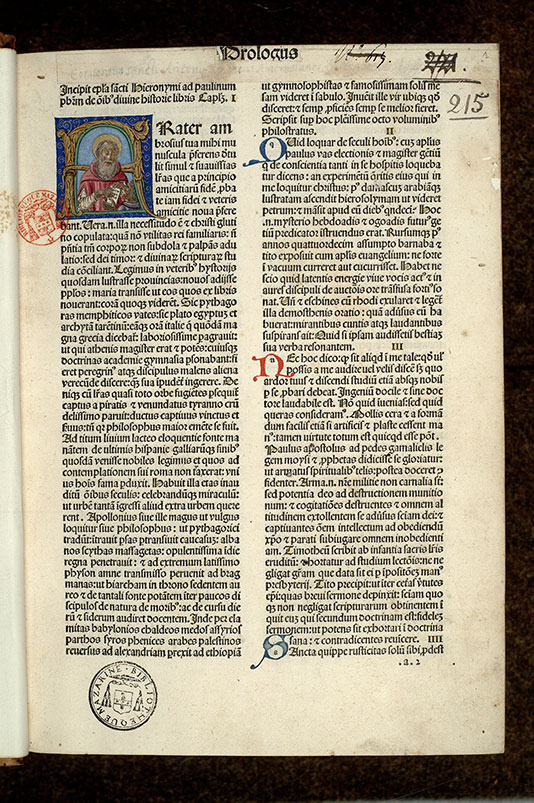 Prologus
215
Incipit epl'a sacti Hieronymi ad paulinum
pbm de oib9 diuine historie libris Capl3. I
Rater am
brosius tua mihi mu
nuscula pferens detu
lit simul & suauissias
lras que a principio
amicitiarū fide, pba
te iam fidei & veteris
amicitie noua pfere
bant. Uera.n.illa necessitudo e & christi gluti
no copulata: quā nō vtilitas rei familiaris: n
pntia tm corpoꝝ non subdola & palpās adu
latio: sed dei timor: & diuinaꝝ scripturaꝝ stu
dia cōciliant. Legimus in veterib9 hystorijs
quosdam lustrasse prouincias: nouos adijsse
pplos: maria transisse ut eos quos ex libris
nouerant: corā quoqꝫ viderēt. Sic pythago
ras memphiticos vates: sic plato egyptū et
archytā tarētinū: eāqꝫ orā italie q̄ quōdā ma
gna grecia dicebat: laboriosissime pagrauit:
ut qui athenis magister erat & potēs: cuiusqꝫ
doctrinas academie gymnasia psonabant: fi
eret peregrin9 atqꝫ discipulus malens aliena
verecūde discere: qꝫ sua ipudēt ingerere. De
niqꝫ cū lras quasi toto orbe fugiētes pseqtur
captus a piratis & venundatus tyranno cru
delissimo paruit: ductus captiuus vinctus et
seruus: tn̄ qꝛ philosophus maior emēte se fuit.
Ad titum liuium lacteo eloquentie fonte ma
nātem de ultimis hispanie galliarūqꝫ finib9
quosdā venisse nobiles legimus et quos ad
contemplationem sui roma non traxerat: vni
us hois fama pduxit. Habuit illa etas inau
ditū oībus seculis: celebrandūqꝫ miraculū:
ut urbē tantā īgressi aliud extra urbem quere
rent. Apollonius siue ille magus ut vulgus
loquitur siue philosophus: ut pythagorici
tradūt: itrauit psas ptransiuit caucasuꝫ: alba
nos scythas massagetas: opulentissima īdie
regna penetrauit: & ad extremum latissimo
physon amne transmisso peruenit ad brag
manas: ut hiarcham in throno sedentem au
reo & de tantali fonte potātem iter paucos di
scipulos de natura de morib9: ac de cursu die
rū & siderum audiret docentem. Inde per ela
mitas babylonios chaldeos medos assyrios
parthos syros phenices arabes palestinos
reuersus ad alexandriam prexit ad ethiopiā
ut gymnosophistas & famosissimam solis me
sam videret ī sabulo. Inuēit ille vir ubiqꝫ qd
disceret: & semp pficiēs semp se melior fieret.
Scripsit sup hoc plēissime octo voluminib9
philostratus. II
Uid loquar de seculi hoib9: cuꝫ aplus
paulus vas electionis & magister gētiū
q̄ de conscientia tanti in se hospitis loqueba
tur dicens: an experimētū q̄ritis eius qui in
me loquitur christus: p9 damascū arabiāqꝫ
lustratam ascendit hierosolymam ut videret
petrum: & māsit apud eū dieb9 qndeci: Hoc
.n.mysterio hebdoadis & ogoadis futur9 gē
tiū predicator istruendus erat. Rursumqꝫ p9
annos quattuordecim assumpto barnaba &
tito exposuit cum aplis euangelium: ne forte
ī vacuum curreret aut cucurrisset. Habet ne
scio quid latentis energie viue vocis act9 & in
aures discipuli de auctoris ore trāsfusa forti9 so
nat. Uñ & eschines cū rhodi exularet & leget
illa demosthenis oratio: quā aduersus eū ha
buerat: mirantibus cunctis atqꝫ laudantibus
suspirans ait: Quid si ipsam audissetis bestiaꝫ
sua verba resonantem. III
Ec hoc dico: qꝛ sit aliqd ī me tale: qd ul'
possis a me audire uel velis discere: sꝫ quo
ardor tuus & discendi studiū etiā absqꝫ nobis
p se pbari debeat. Ingeniū docile & sine doc
tore laudabile est. Nō quid īuenias: sed quid
queras consideram9. Mollis cera & a forman
dum facilis etiā si artificis & plaste cessent ma
n9: tamen virtute totum est quicqd esse pōt.
Paulus apostolus ad pedes gamalielis le
gem moysi & pphetas didicisse se gloriatur:
ut armatus spiritualib9 telis: postea doceret &
fidenter. Arma.n. nr̄e militie non carnalia st:
sed potentia deo ad destructionem munitio
num: & cogitatiōes destruentes & omnem al
titudinem extollentem se aduersus sciam dei: &
captiuantes oem intellectum ad obediendū
xpo & parati subiugare omnem inobedienti
am. Timotheū scribit ab infantia sacris lris
eruditū: & hortatur ad studium lectōis: ne ne
gligat gram que data sit ei p īpositōeꝫ man9
presbyterij. Tito precipit: ut iter ceteras vtutes
epi: quas breui sermone depinxit: sciam quo
qꝫ non negligat scripturarum obtinentem ī
quit euꝫ qui secundum doctrinam est: fidelem
sermonem: ut potens sit exhortari ī doctrina
sana: & contradicentes reuīcere. IIII
Ancta quippe rusticitas solū sibi, pdest
.a. 2
BIBLIOTHEQUE MAZARINE